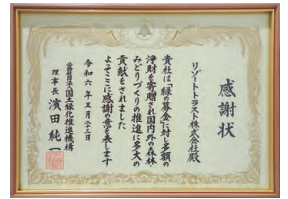 感謝状
リゾートトラスト株式会社殿
貴社は「緑の募金」に対し多額の
浄財を寄贈され国内外の森林
みどりづくりの推進に多大の
貢献をされました
よってここに感謝の意を表します
令和六年五月二十三日
公益社団法人国土緑化推進機構
理事長 濱田純一